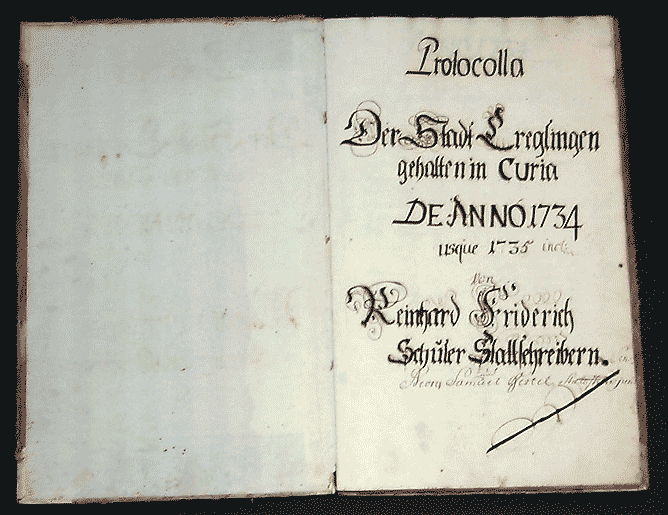 Protocolla
Der Stadt Creglingen
gehalten in Curia
DE ANNO 1734
usque 1735 incl.
Von
Reinhard Friderich
Schüler Stattschreibern.
Georg Samuel